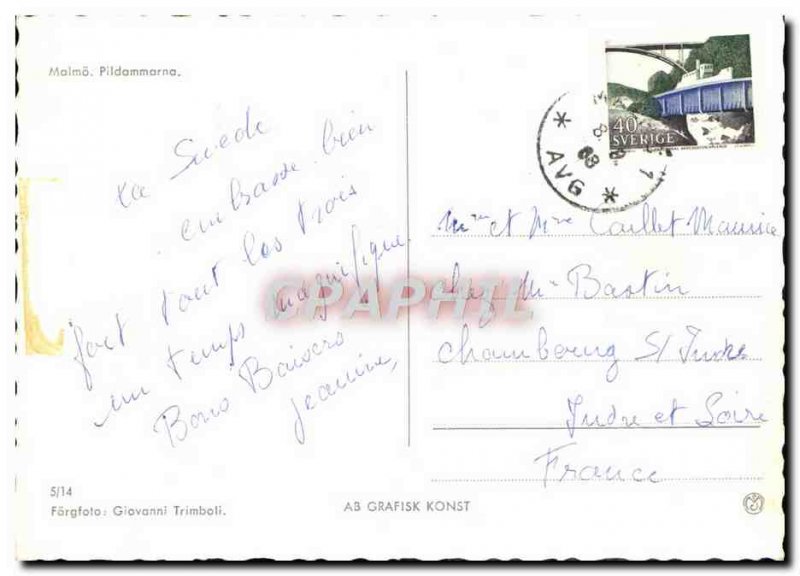 Malmö. Pildammarna.
40
SVERIGE
AVG
68
1
La Suède
embrasse bien
fort tout les trois
un temps magnifique.
Bons Baisers
Jeanine,
Mme et Mme Caillet Maurice
chez Mr Bastin
Chambourg S/ Indre
Indre et Loire
France
CPAPHIL
5/14
Färgfoto: Giovanni Trimboli.
AB GRAFISK KONST